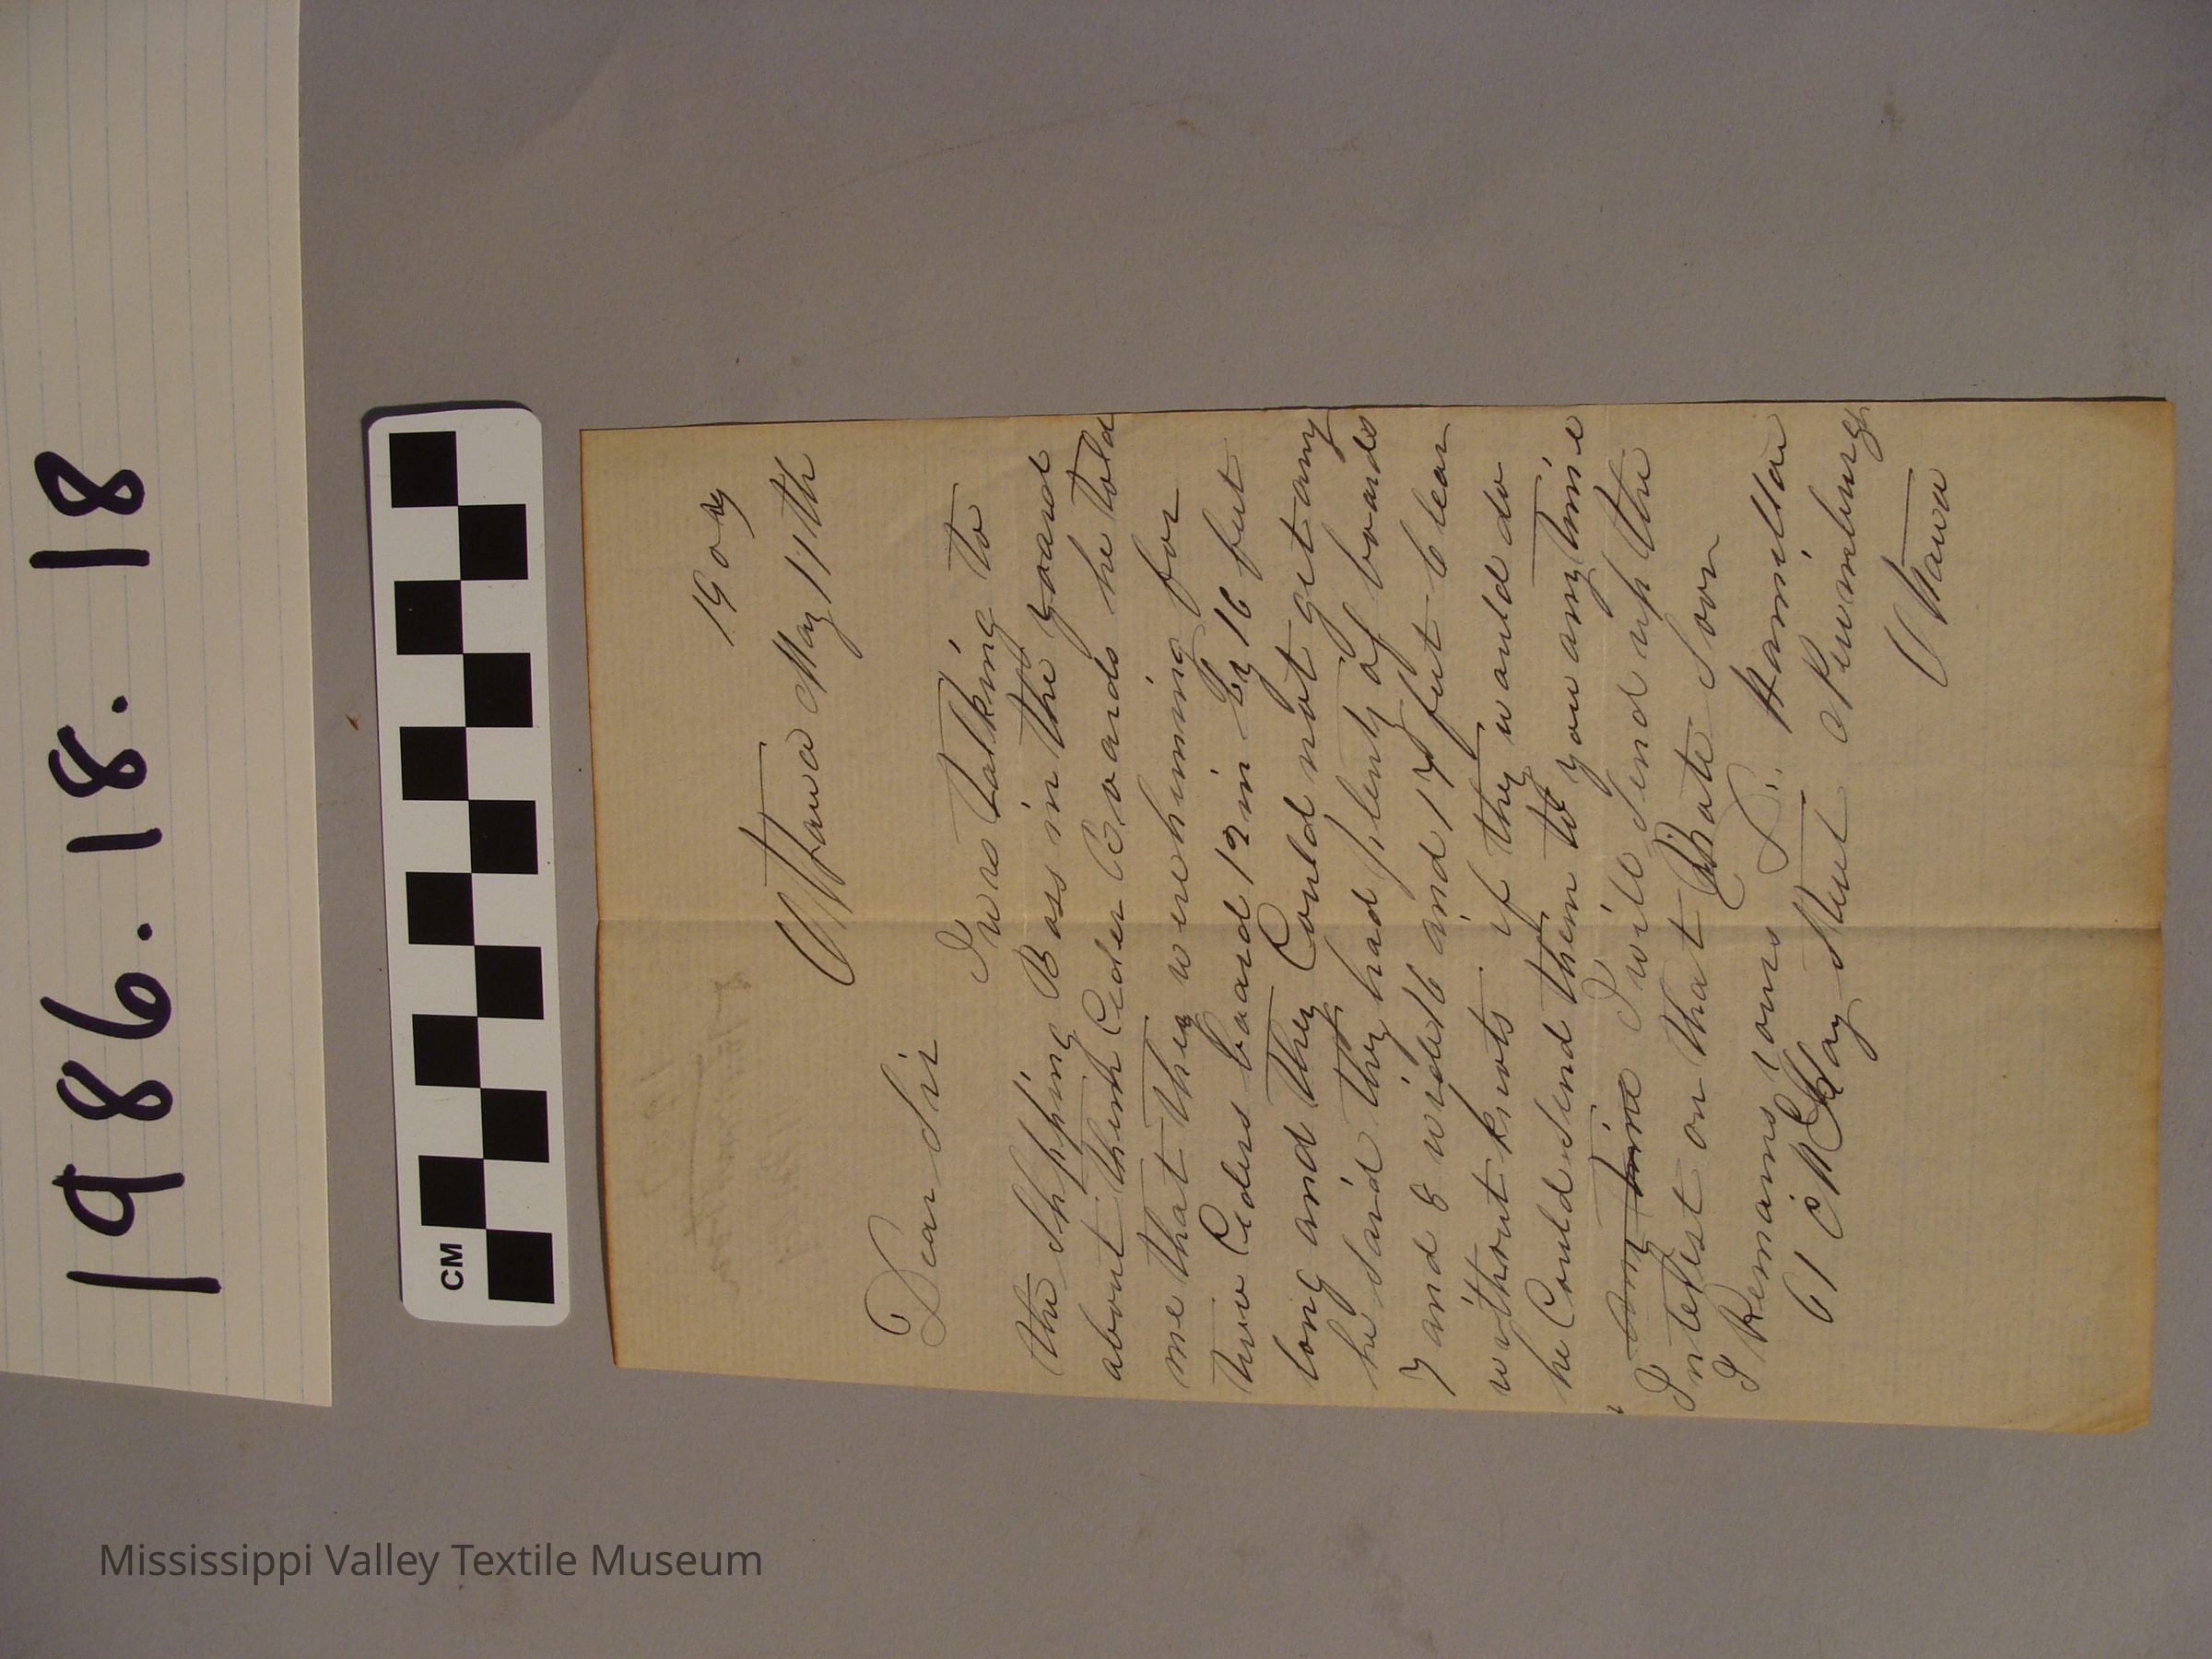 1986.18.18
CM
1903
Ottawa May 11th
Dear Sir
I was talking to
the Shipping Boss in the yoard
about them Ceder Boards he told
me that they were huming for
two Ceders board 12 in by 16 feet
long and they Could not get any
he said they had plenty of boards
7 and 8 wide 16 and 17 feet clear
without knots if they would do
he Could send them to you any time
I will send up the
Intrest on that Note Soon
I Remains yours T. Hamilton
61 McKay Street New Edinburgh
Ottawa
Mississippi Valley Textile Museum